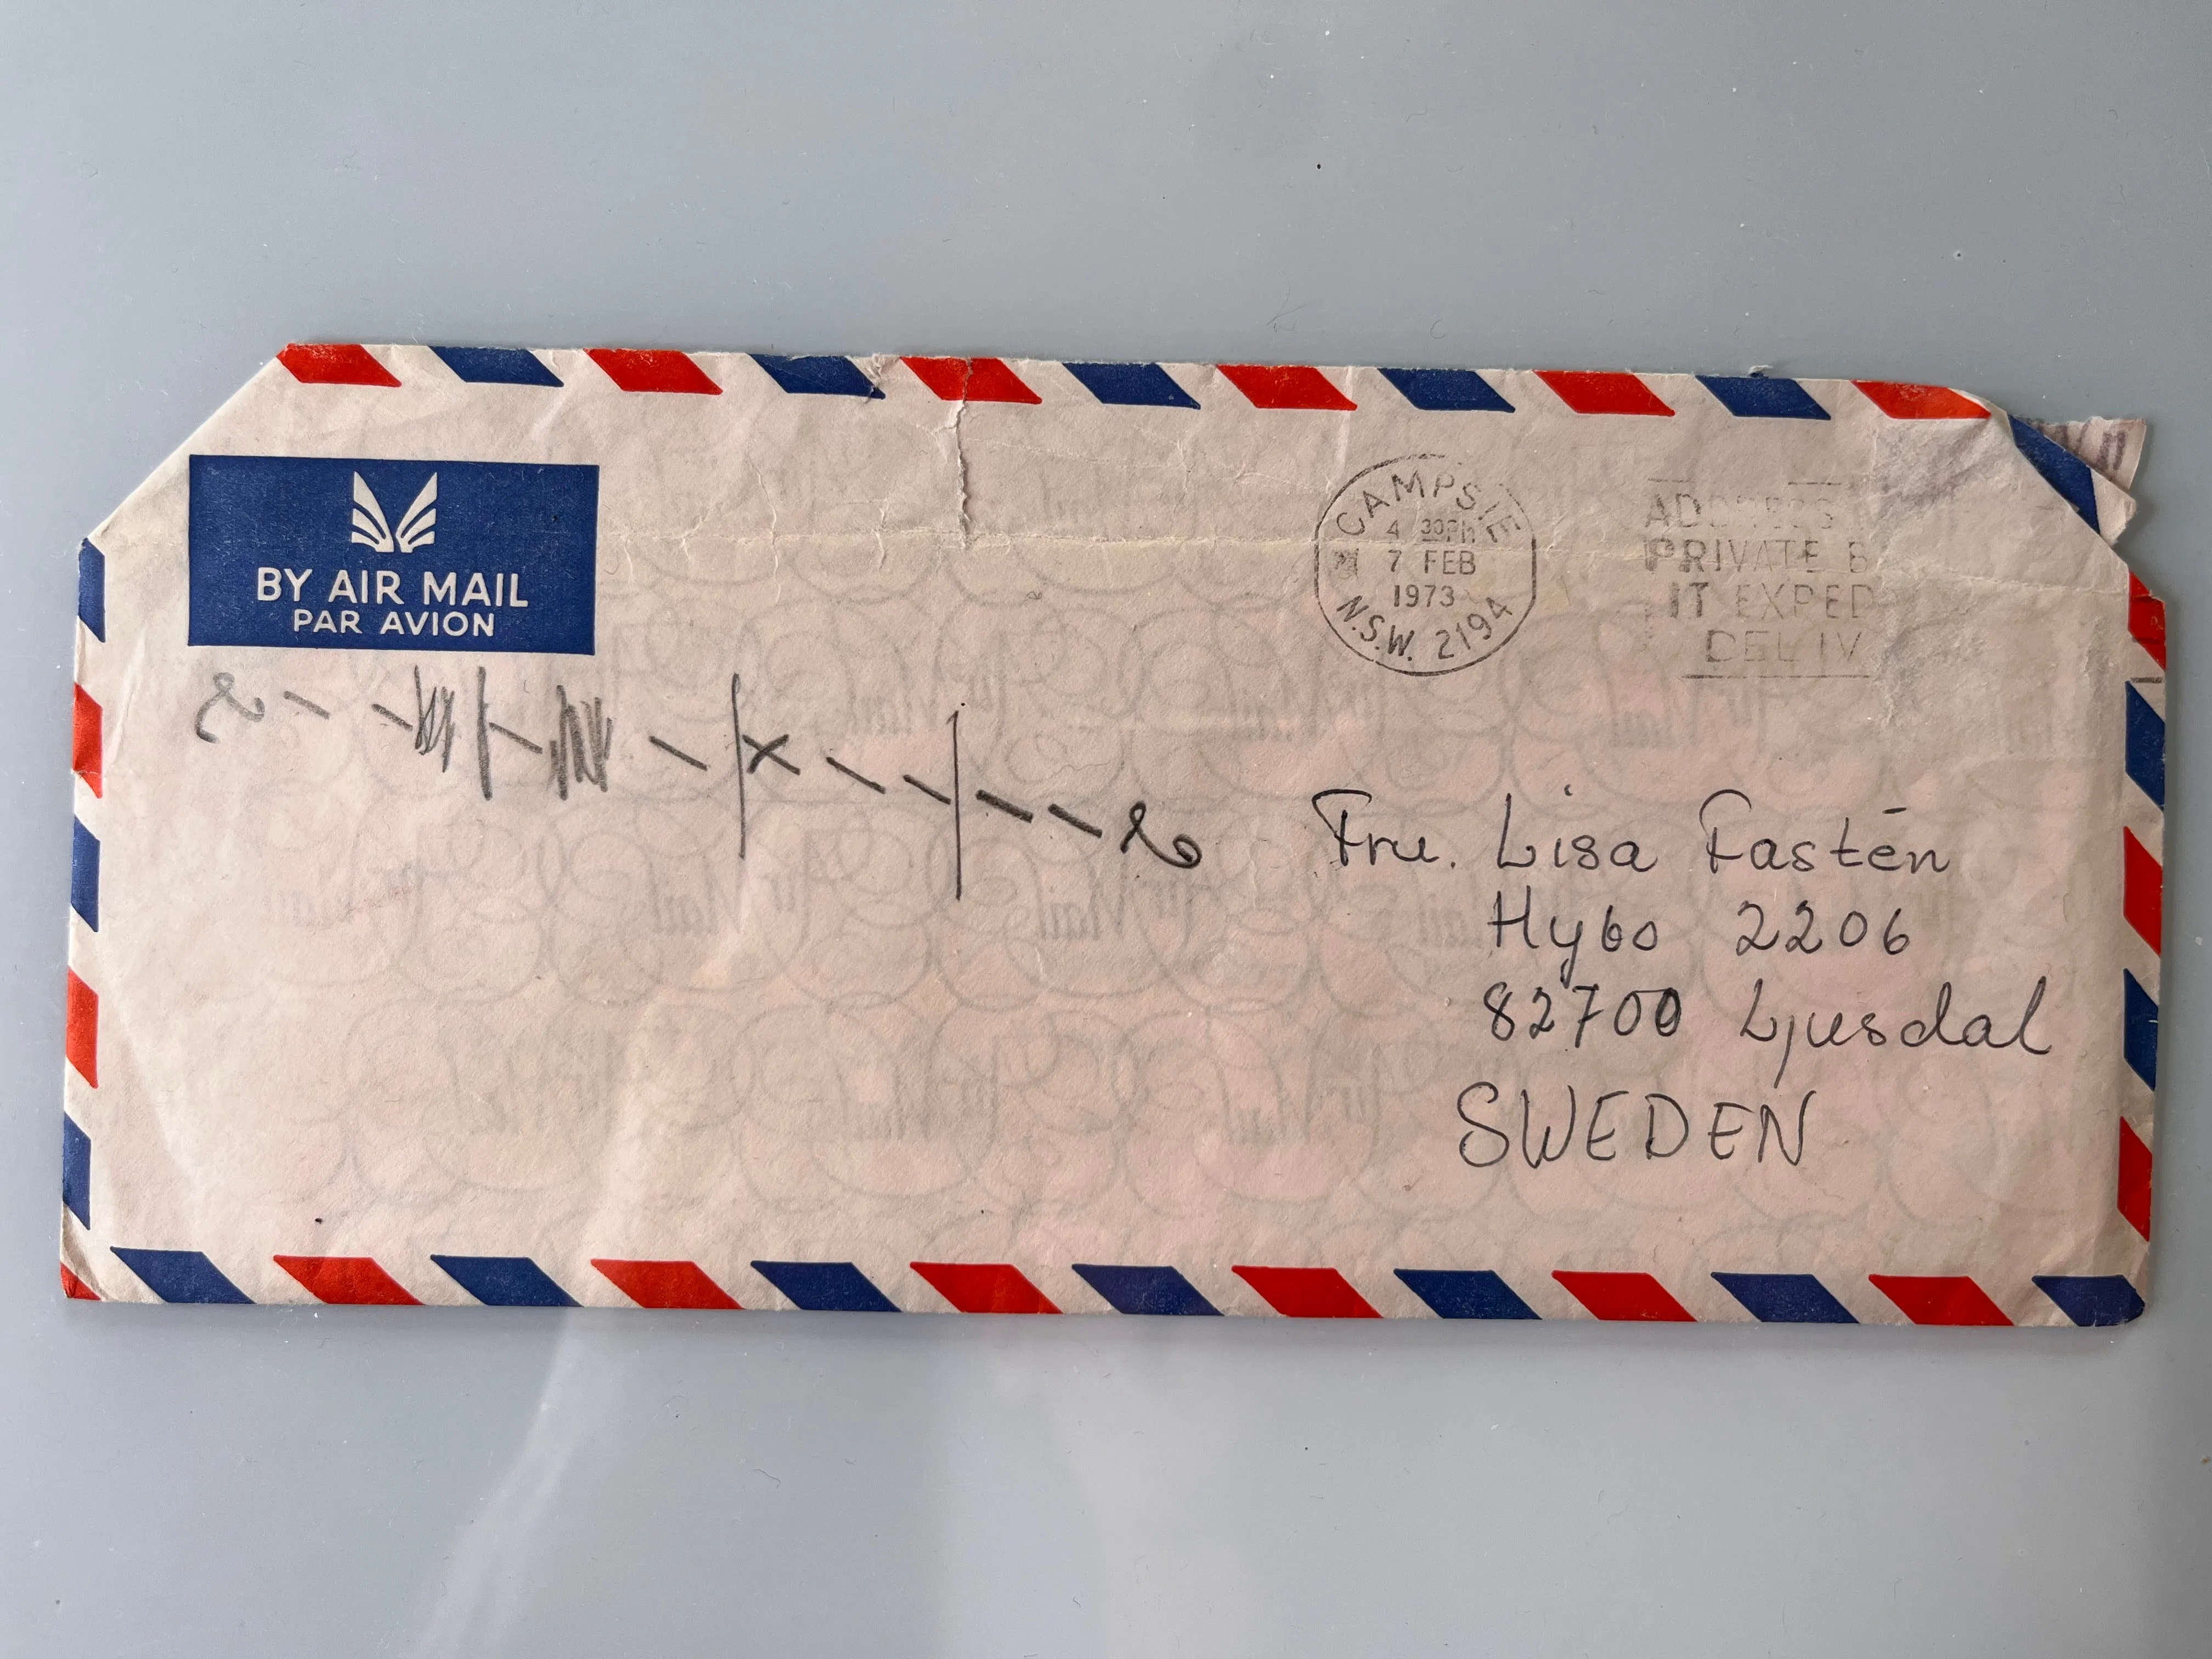 BY AIR MAIL
PAR AVION
CAMPSIE
4 30PM
7 FEB
1973
N.S.W. 2194
ADDRESS
PRIVATE B
IT EXPED
DELIV
Fru. Lisa Fastén
Hybo 2206
82700 Ljusdal
SWEDEN